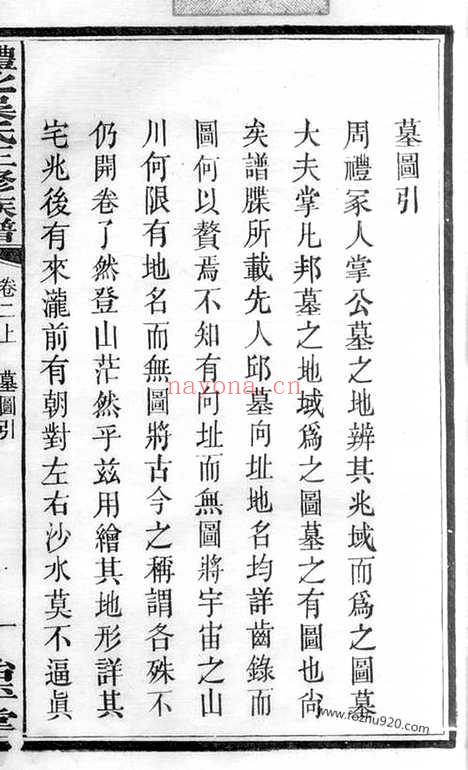 墓圖引
周禮冢人掌公墓之地辨其兆域而爲之圖墓
大夫掌凡邦墓之地域爲之圖墓之有圖也尙
矣譜牒所載先人邱墓向址地名均詳齒錄而
圖何以贅焉不知有向址而無圖將宇宙之山
川何限有地名而無圖將古今之稱謂各殊不
仍開卷了然登山茫然乎兹用繪其地形詳其
宅兆後有來瀧前有朝對左右沙水莫不逼眞
吳氏三修族譜
卷二上
墓圖引
一
nayona.cn
www.fozhu920.com